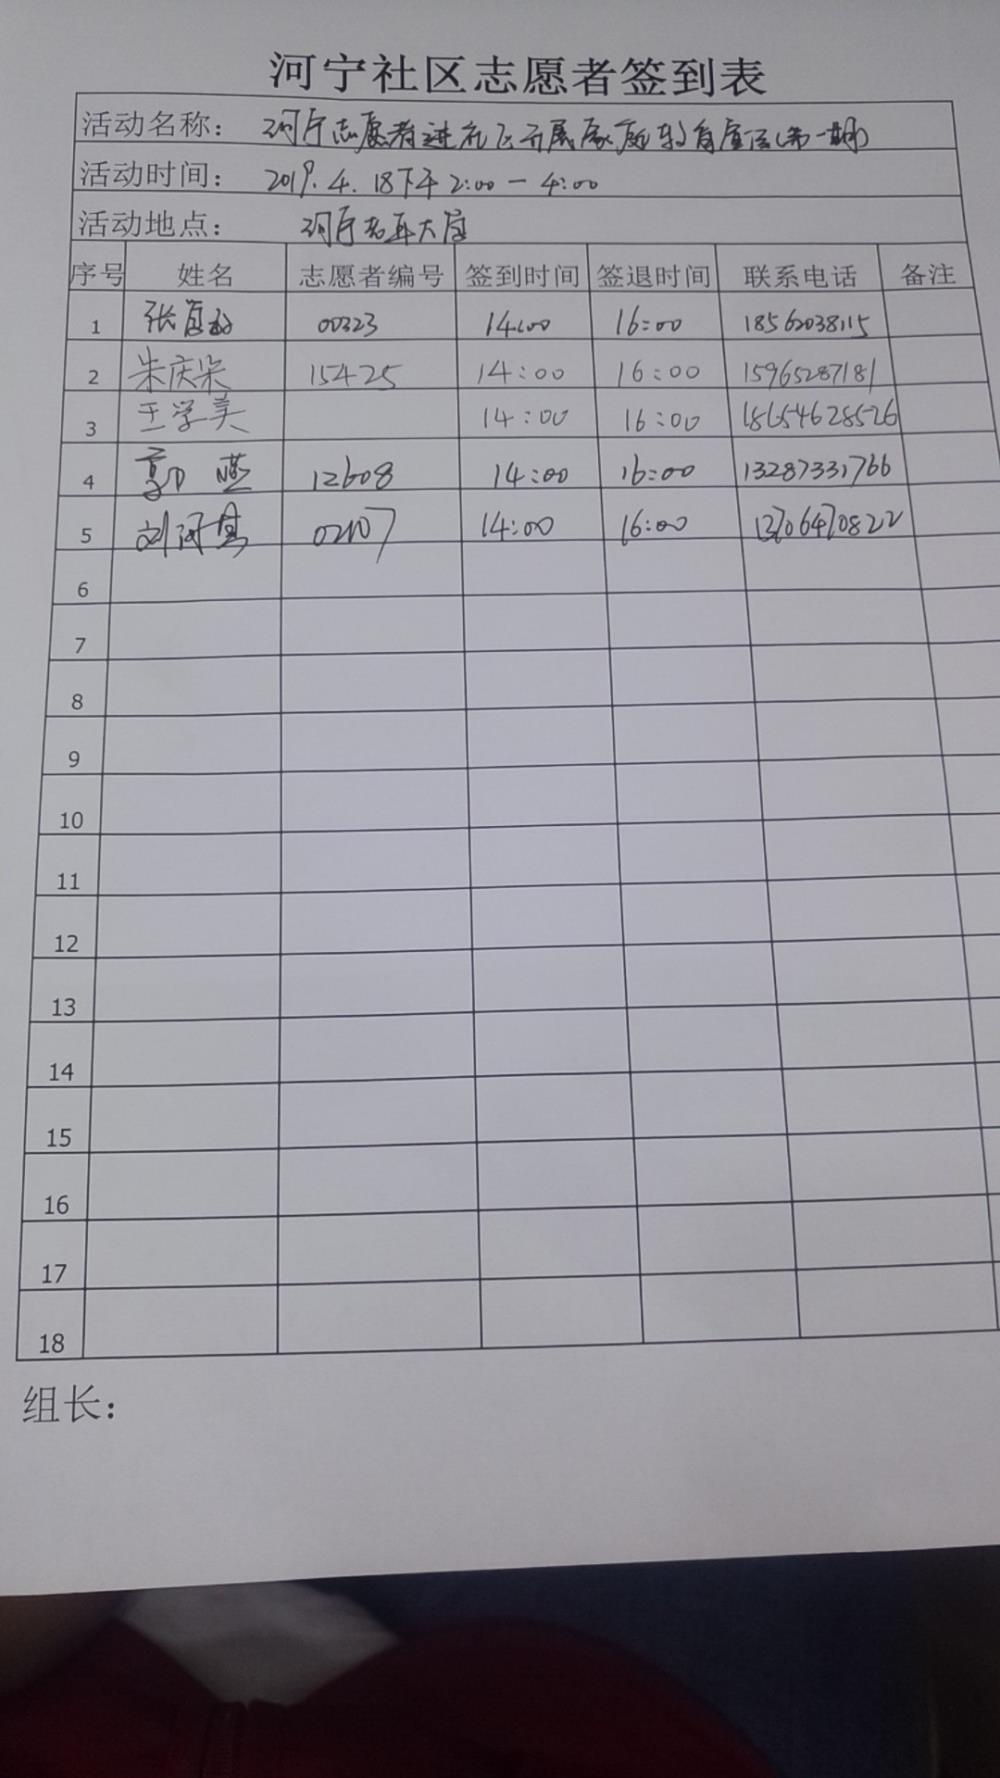 河宁社区志愿者签到表
活动名称： 河宁志愿者进社区开展家庭教育宣传(第一期)
活动时间： 2019.4.18下午2:00－4:00
活动地点： 河宁老年大学
序号 姓名 志愿者编号 签到时间 签退时间 联系电话 备注
1 张 00323 14:00 16:00 18562038115
2 朱庆荣 15425 14:00 16:00 15965287181
3 王学美 14:00 16:00 18654628526
4 郭燕 12608 14:00 16:00 13287331766
5 刘河 02107 14:00 16:00 13706470822
6
7
8
9
10
11
12
13
14
15
16
17
18
组长：